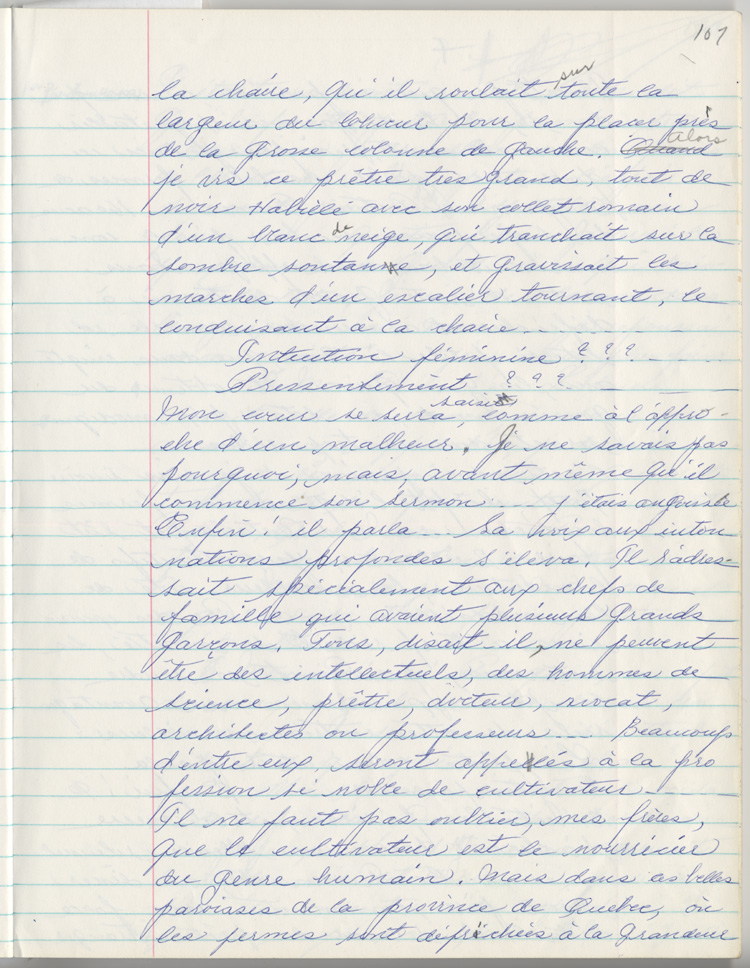 107
la chaire, qu'il roulait sur toute la
largeur du choeur pour la placer près
de la grosse colonne de gauche. Quand Alors
je vis ce prêtre très grand, tout de
noir Habillé avec son collet romain
d'un blanc de neige, qui tranchait sur la
sombre soutane, et gravissait les
marches d'un escalier tournant, le
conduisant à la chaire ...........
Intuition féminine ? ? ?
Pressentiment ? ? ?
Mon cœur se serra, saisi comme à l'appro-
che d'un malheur. Je ne savais pas
pourquoi, mais, avant même qu'il
commence son sermon .... j'étais angoissée
Enfin! il parla ... Sa voix aux into-
nations profondes s'éleva. Il s'adres-
sait spécialement aux chefs de
famille qui avaient plusieurs grands
garçons. Tous, disait-il, ne peuvent
être des intellectuels, des hommes de
science, prêtre, docteur, avocat,
architectes ou professeurs .... Beaucoup
d'entre eux, seront appelés à la pro
fession si noble de cultivateur ......
Il ne faut pas oublier, mes frères,
que le cultivateur est le nourricier
du genre humain. Mais dans ces belles
paroisses de la province de Quebec, où
les fermes sont défrichées à la grandeur